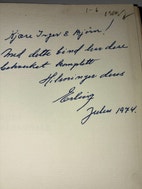 Kjære Inger & Bjørn!
Med dette bind blir dere
bokverket komplett
Hilsninger deres
Erling
Julen 1974.